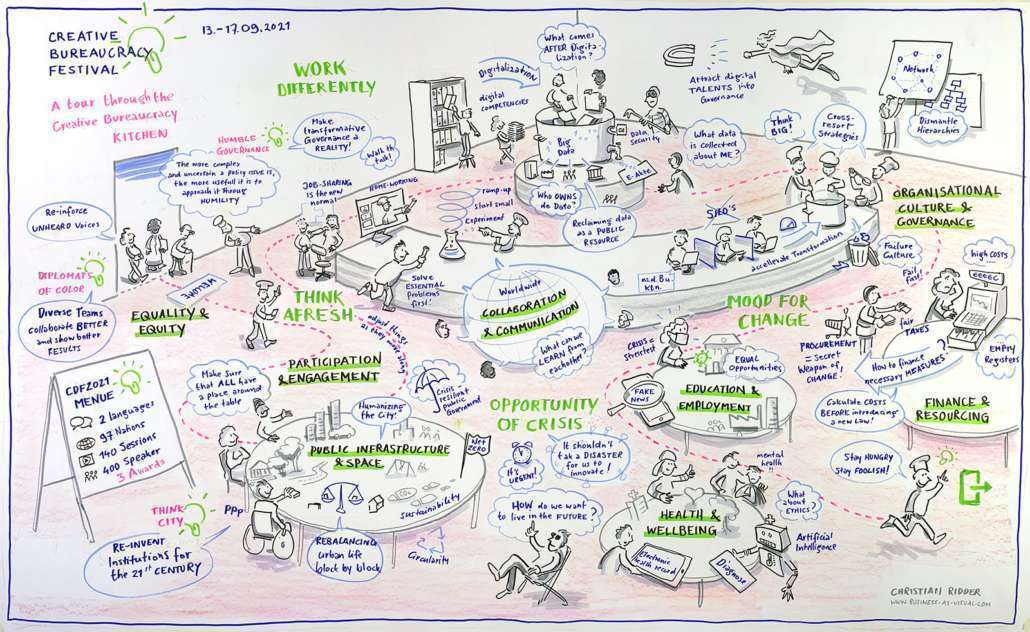 CREATIVE
BUREAUCRACY
FESTIVAL
13.-17.09.2021
A tour through the
Creative Bureaucracy
KITCHEN
WORK
DIFFERENTLY
HUMBLE
GOVERNANCE
Make
transformative
Governance a
REALITY!
Walk th
talk!
The more complex
and uncertain a policy issue is,
the more usefull it is to
approach it throug
HUMILITY
JOB-SHARING
is the new
normal
HOME-WORKING
Digitalization
digital
COMPETENCIES
What comes
AFTER Digita
lization?
Big
Data
Data
Security
Who OWNS
de Data?
E-Akte
Reclaiming data
as a PUBLIC
RESOURCE
ramp-up
start small
Experiment
Attract digital
TALENTS into
Governance
What data
is collected
about ME?
Network
Dismantle
Hierarchies
Think
BIG!
Cross-
resort
Strategies
ORGANISATIONAL
CULTURE &
GOVERNANCE
accellerate Transformation
Failure
Culture
Fail
fast!
Re-inforce
UNHEARD Voices
WELCOME
DIPLOMATS
OF COLOR
Diverse Teams
collaborate BETTER
and show better
RESULTS
EQUALITY &
EQUITY
THINK
AFRESH
Solve
ESSENTIAL
Problems
first!
adjust things
as they move along
Worldwide
COLLABORATION
& COMMUNICATION
What can we
LEARN from
eachother?
MOOD FOR
CHANGE
CRISIS =
stresstest
EQUAL
Opportunities
FAKE
NEWS
EDUCATION &
EMPLOYMENT
high COSTS
€€€€€
fair
TAXES
PROCUREMENT
= Secret
Weapon of
CHANGE!
How to finance
necessary MEASURES?
EMPTY
Registers
Calculate COSTS
BEFORE introducing
a new Law!
FINANCE &
RESOURCING
CBF2021
MENUE
2 languages
97 Nations
140 Sessions
400 Speaker
3 Awards
PARTICIPATION
& ENGAGEMENT
Make Sure
that ALL have
a place around
the table
Humanizing
the City!
Crisis
resilient
public
Government
PUBLIC INFRASTRUCTURE
& SPACE
Net
ZERO
THINK
CITY
PPP
RE-INVENT
Institutions for
the 21st CENTURY
REBALANCING
urban life
block by block
Sustainability
Circularity
OPPORTUNITY
OF CRISIS
It's
URGENT!
It shouldn't
tak a DISASTER
for us to
innovate!
HOW do we want
to live in the FUTURE?
mental
health!!
HEALTH &
WELLBEING
electronic
health record
Diagnose
What
about
ETHICS?
Artificial
Intelligence
Stay HUNGRY
Stay FOOLISH!
CHRISTIAN RIDDER
WWW.BUSINESS-AS-VISUAL.COM